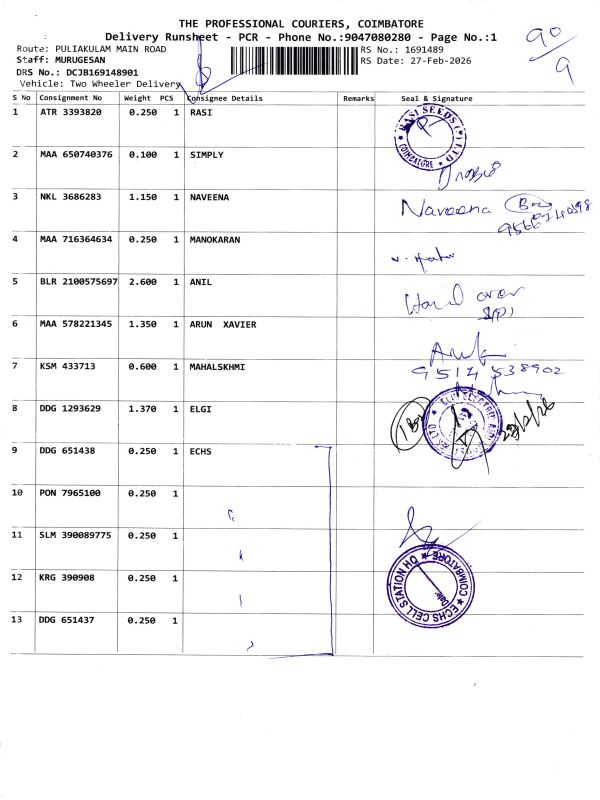 THE PROFESSIONAL COURIERS, COIMBATORE
Delivery Runsheet - PCR - Phone No.:9047080280 - Page No.:1
90
9
Route: PULIAKULAM MAIN ROAD
RS No.: 1691489
Staff: MURUGESAN
RS Date: 27-Feb-2026
DRS No.: DCJB169148901
Vehicle: Two Wheeler Delivery
S No Consignment No Weight PCS Consignee Details Remarks Seal & Signature
1 ATR 3393820 0.250 1 RASI
RASI SEEDS (P) LTD COIMBATORE
2 MAA 650740376 0.100 1 SIMPLY
3 NKL 3686283 1.150 1 NAVEENA Naveena
4 MAA 716364634 0.250 1 MANOKARAN
5 BLR 2100575697 2.600 1 ANIL
Hand over
6 MAA 578221345 1.350 1 ARUN XAVIER
7 KSM 433713 0.600 1 MAHALSKHMI
9514538902
8 DDG 1293629 1.370 1 ELGI
9 DDG 651438 0.250 1 ECHS
10 PON 7965100 0.250 1
11 SLM 390089775 0.250 1
12 KRG 390908 0.250 1
ECHS CELL STATION HQ COIMBATORE
Date:
13 DDG 651437 0.250 1